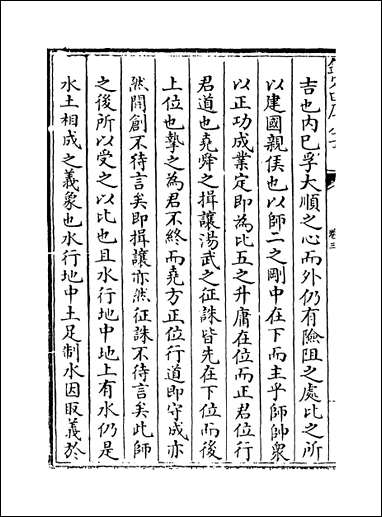 卷三
吉也内已孚大順之心而外仍有險阻之處比之所
以建國親侯也以師二之剛中在下而主乎師帥衆
以正功成業定即為比五之升庸在位而正君位行
君道也堯舜之揖讓湯武之征誅皆先在下位而後
上位也摯之為君不終而堯方正位行道即守成亦
然開創不待言矣即揖讓亦然征誅不待言矣此師
之後所以受之以比也且水行地中地上有水仍是
水土相成之義象也水行地中土足制水因取義於